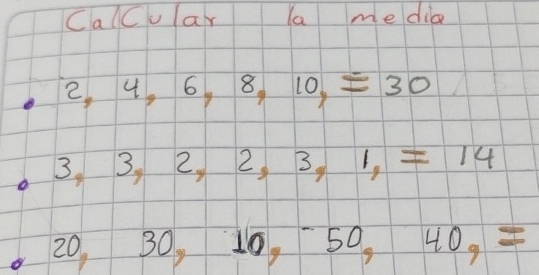 Calcular la media
• 2, 4, 6, 8, 10, = 30
• 3, 3, 2, 2, 3, 1, = 14
• 20, 30, 10, 50, 40, =